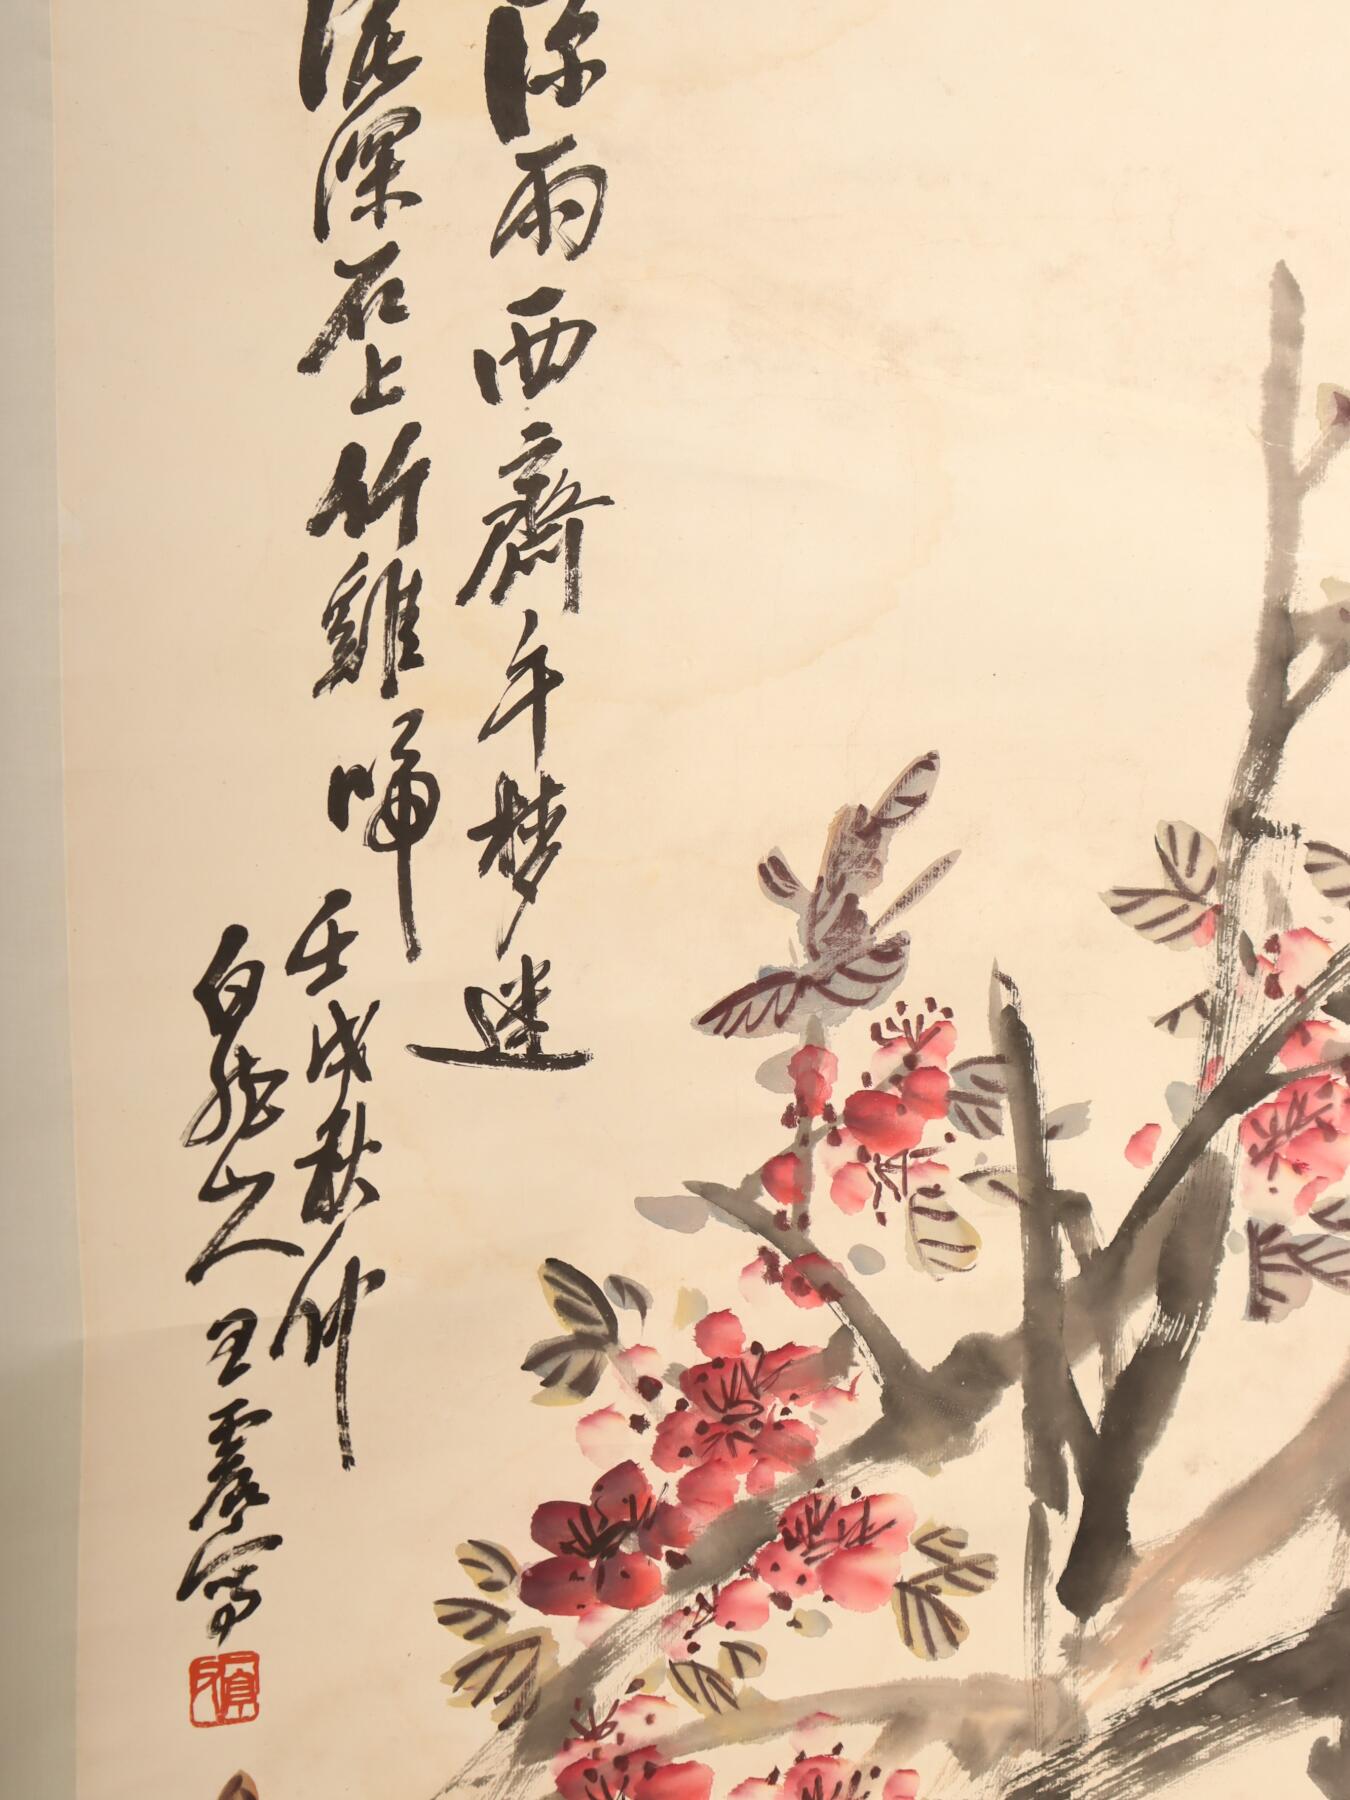 深雨西齋午夢迷
深石上竹雞啼
壬戌秋仲
白龍山人王震寫